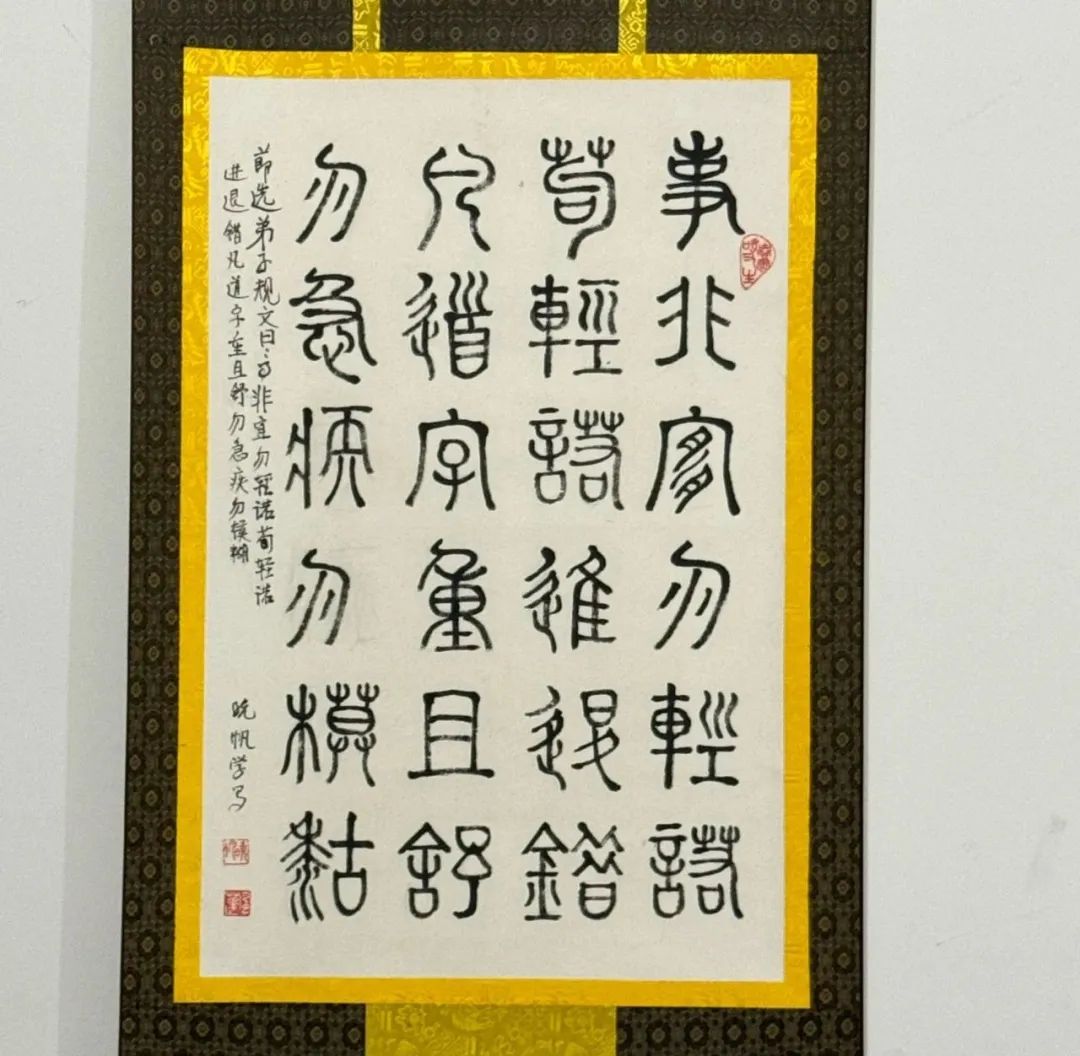 事非宜勿輕諾
苟輕諾進退錯
凡道字重且舒
勿急疾勿模黏
節选弟子规文曰：事非宜勿轻诺苟轻诺
进退错凡道字重且舒勿急疾勿模糊
晚帆学写